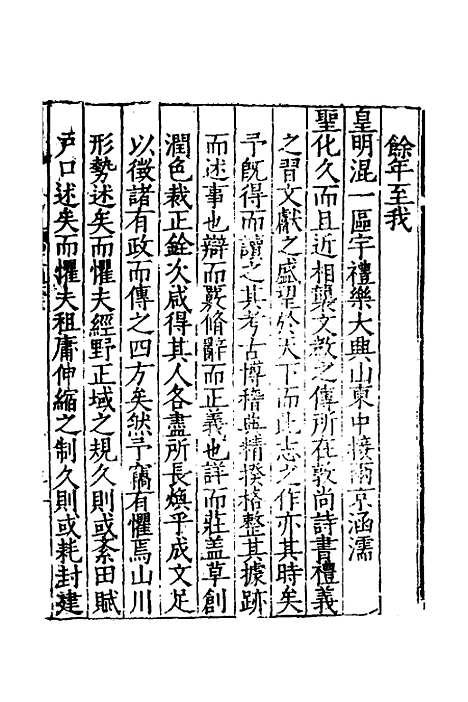 餘年至我
皇明混一區宇禮樂大興山東中接兩京涵濡
聖化久而且近相襲文教之傳所在敦尚詩書禮義
之習文獻之盛望於天下而此志之作亦其時矣
予旣得而讀之其考古博稽典精揆格整其據跡
而述事也辯而覈脩辭而正義也詳而莊盖草創
潤色裁正銓次咸得其人各盡所長煥乎成文足
以徵諸有政而傳之四方矣然予竊有懼焉山川
形勢述矣而懼夫經野正域之規久則或紊田賦
戶口述矣而懼夫租庸伸縮之制久則或耗封建